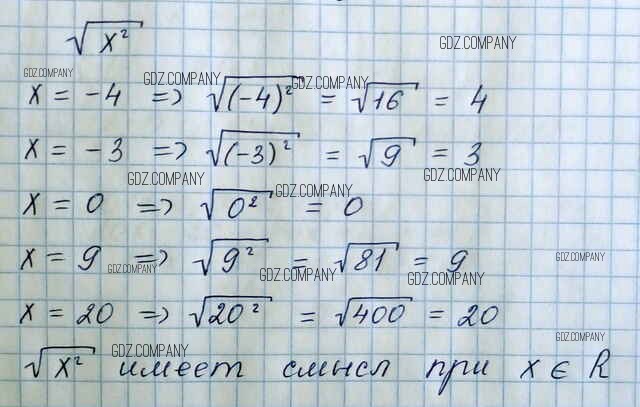 √x²
GDZ.COMPANY
GDZ.COMPANY
GDZ.COMPANY
GDZ.COMPANY
x = -4 => √(-4)² = √16 = 4
x = -3 => √(-3)² = √9 = 3
GDZ.COMPANY
GDZ.COMPANY
GDZ.COMPANY
x = 0 => √0² = 0
x = 9 => √9² = √81 = 9
GDZ.COMPANY
GDZ.COMPANY
GDZ.COMPANY
GDZ.COMPANY
x = 20 => √20² = √400 = 20
GDZ.COMPANY
GDZ.COMPANY
√x² имеет смысл при x ∈ R